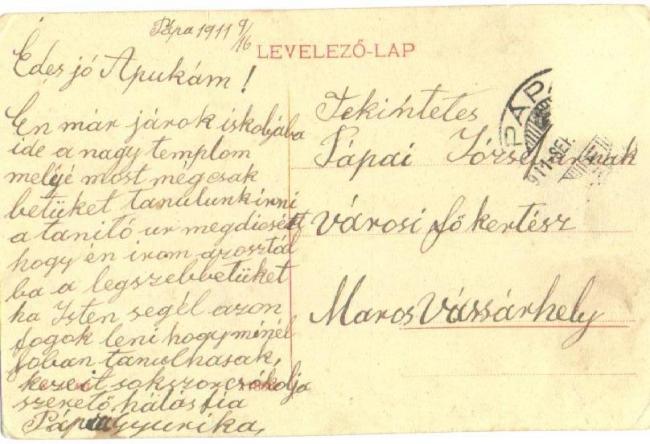 Pápa 1911 9/16
LEVELEZŐ-LAP
Edes jó Apukám!
En már járok iskolába
ide a nagy templom
melyé most megcsak
betüket tanulunk irni
a tanító ur megdicsért
hogy én irom azosztál
ba a legszebb betüket
ha Isten segél azon
fogok leni hogy minél
joban tanulhasak,
kezeit sokszor csókolja
szerető hálás fia
Pápai Gyurika,
PÁPA
911 SEP
Tekintetes
Pápai József urnak
városi főkertész
Maros Vássárhely